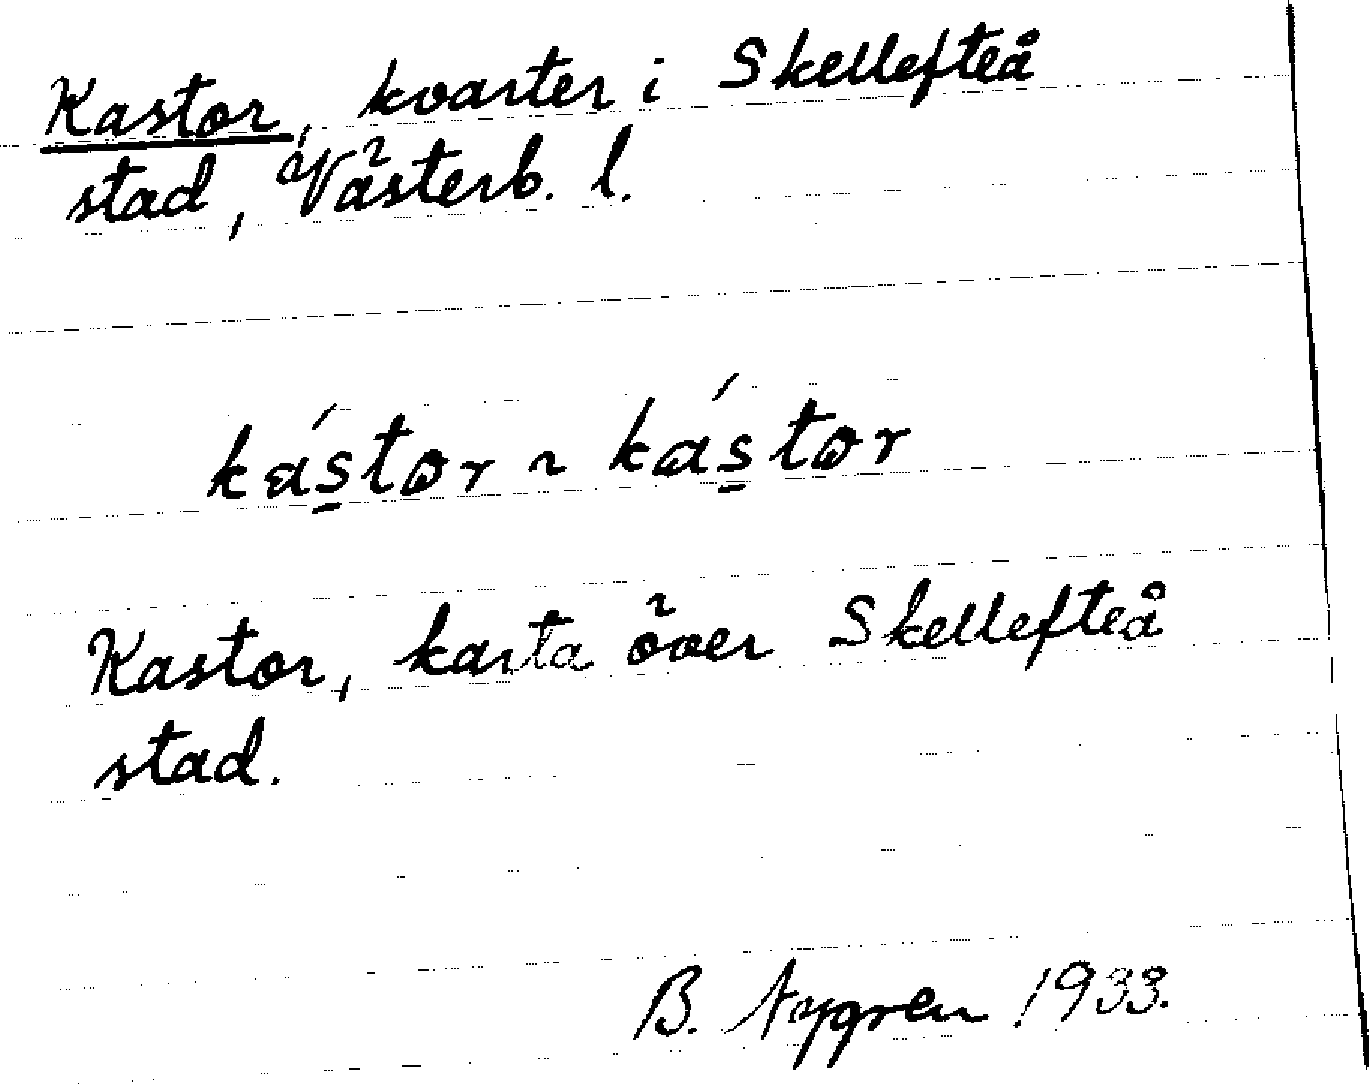 Kastor, kvarter i Skellefteå
stad, Västerb. l.
kás̱tor ~ kás̱tor
Kastor, karta över Skellefteå
stad.
B. Nygren 1933.